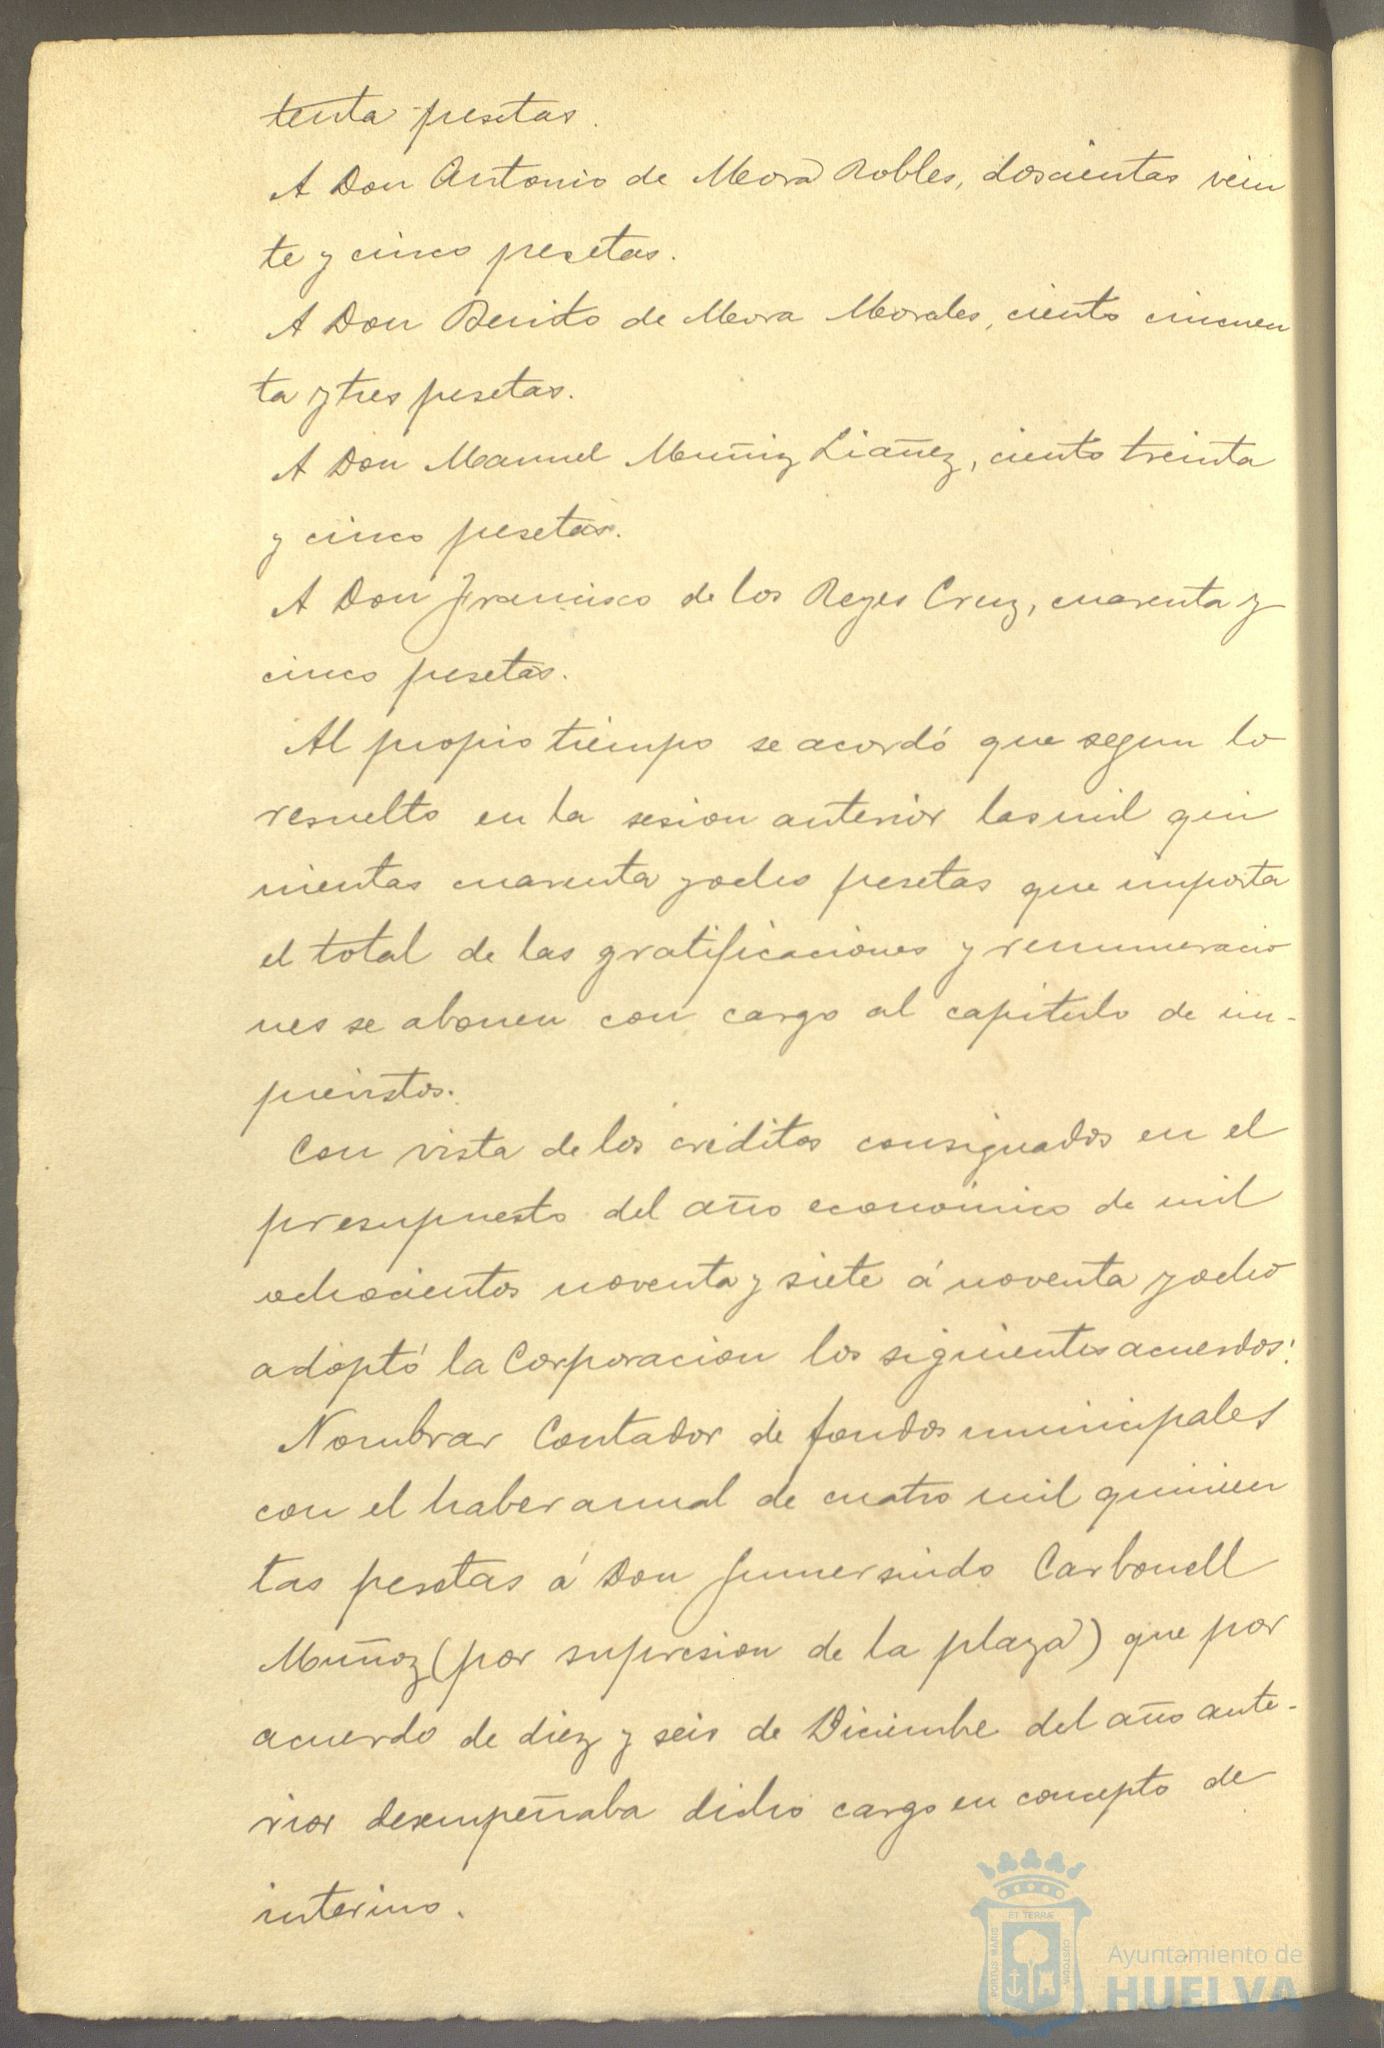 tenta pesetas.
A Don Antonio de Mora Robles, doscientas vein
te y cinco pesetas.
A Don Benito de Mora Morales, ciento cincuen
ta y tres pesetas.
A Don Manuel Muñiz Liañez, ciento treinta
y cinco pesetas.
A Don Francisco de los Reyes Cruz, cuarenta y
cinco pesetas.
Al propio tiempo se acordó que segun lo
resuelto en la sesion anterior las mil qui
nientas cuarenta y ocho pesetas que importa
el total de las gratificaciones y remuneracio
nes se abonen con cargo al capitulo de im-
previstos.
Con vista de los créditos consignados en el
presupuesto del año económico de mil
ochocientos noventa y siete á noventa y ocho
adoptó la Corporacion los siguientes acuerdos:
Nombrar Contador de fondos municipales
con el haber anual de cuatro mil quinien
tas pesetas á Don Gumersindo Carbonell
Muñoz (por supresion de la plaza) que por
acuerdo de diez y seis de Diciembre del año ante-
rior desempeñaba dicho cargo en concepto de
interino.
PORTUS MARIS ET TERRÆ CUSTODIA
Ayuntamiento de
HUELVA